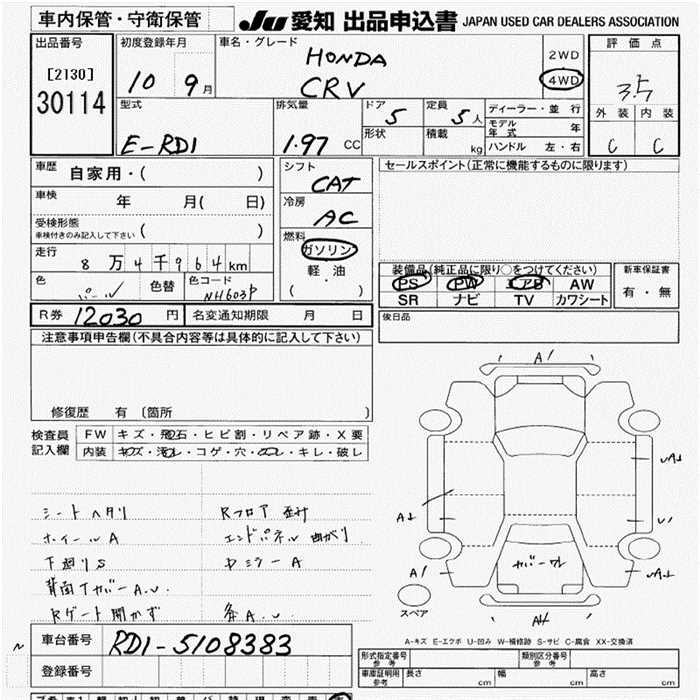 車内保管・守衛保管
JU 愛知 出品申込書 JAPAN USED CAR DEALERS ASSOCIATION
出品番号
[2130]
30114
初度登録年月
10 9月
車名・グレード
HONDA
CRV
2WD
4WD
評価点
3.5
外装 内装
C C
型式
E-RD1
排気量
1.97 CC
ドア 5
形状
定員 5人
積載 kg
ディーラー・並行
モデル年式 年
ハンドル 左・右
車歴 自家用・( )
車検 年 月( 日)
受検形態
車検付きのみ記入して下さい ( )
走行 8万4千964km
色 パール 色替 色コード NH603P
シフト CAT
冷房 AC
燃料
ガソリン
軽・油
( ・ )
セールスポイント(正常に機能するものに限ります)
装備品(純正品に限り○をつけてください)
PS PW エアB AW
SR ナビ TV カワシート
新車保証書
有・無
R券 12030 円 名変通知期限 月 日
後日品
注意事項申告欄(不具合内容等は具体的に記入して下さい)
修復歴 有 〔箇所 〕
検査員記入欄
FW キズ・飛石・ヒビ割・リペア跡・X要
内装 キズ・汚レ・コゲ・穴・ビレ・キレ・破レ
シートヘタリ Rフロア歪み
ホイールA エンドパネル曲がり
下廻りS Dミラー A
背面TカバーA.U.
Rゲート開かず A.U.
A1
A1
A1
U1
カバーワレ
スペア
A-キズ E-エクボ U-凹み W-補修跡 S-サビ C-腐食 XX-交換済
車台番号 RD1-5108383
登録番号
型式指定番号 参考
類別区分番号 参考
車庫証明用 参考 長さ cm 幅 cm 高さ cm